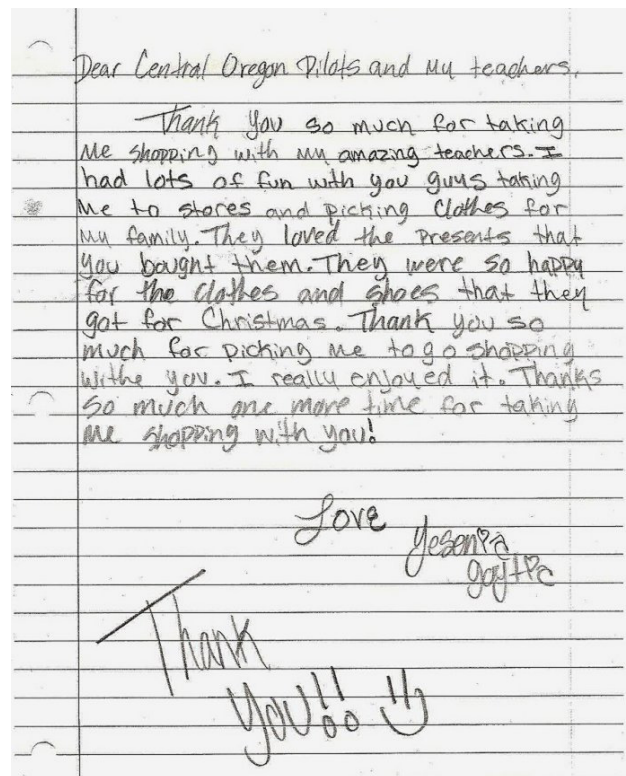 Dear Central Oregon Pilots and my teachers,
Thank you so much for taking
me shopping with my amazing teachers. I
had lots of fun with you guys taking
me to stores and picking clothes for
my family. They loved the presents that
you bought them. They were so happy
for the clothes and shoes that they
got for Christmas. Thank you so
much for picking me to go shopping
withe you. I really enjoyed it. Thanks
so much one more time for taking
me shopping with you!
Love
Yesenia
Thank
you!!